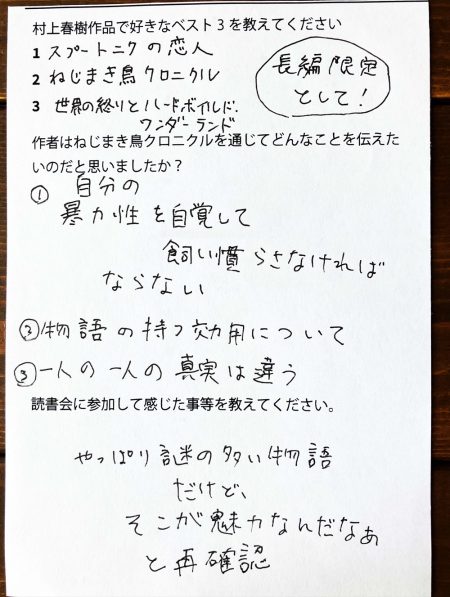 村上春樹作品で好きなベスト3を教えてください
1 スプートニクの恋人
2 ねじまき鳥クロニクル
3 世界の終りとハードボイルド.
ワンダーランド
長編限定
として!
作者はねじまき鳥クロニクルを通じてどんなことを伝えた
いのだと思いましたか?
① 自分の
暴力性を自覚して
飼い慣らさなければ
ならない
②物語の持つ効用について
③一人の一人の真実は違う
読書会に参加して感じた事等を教えてください。
やっぱり謎の多い物語
だけど、
そこが魅力なんだなぁ
と再確認